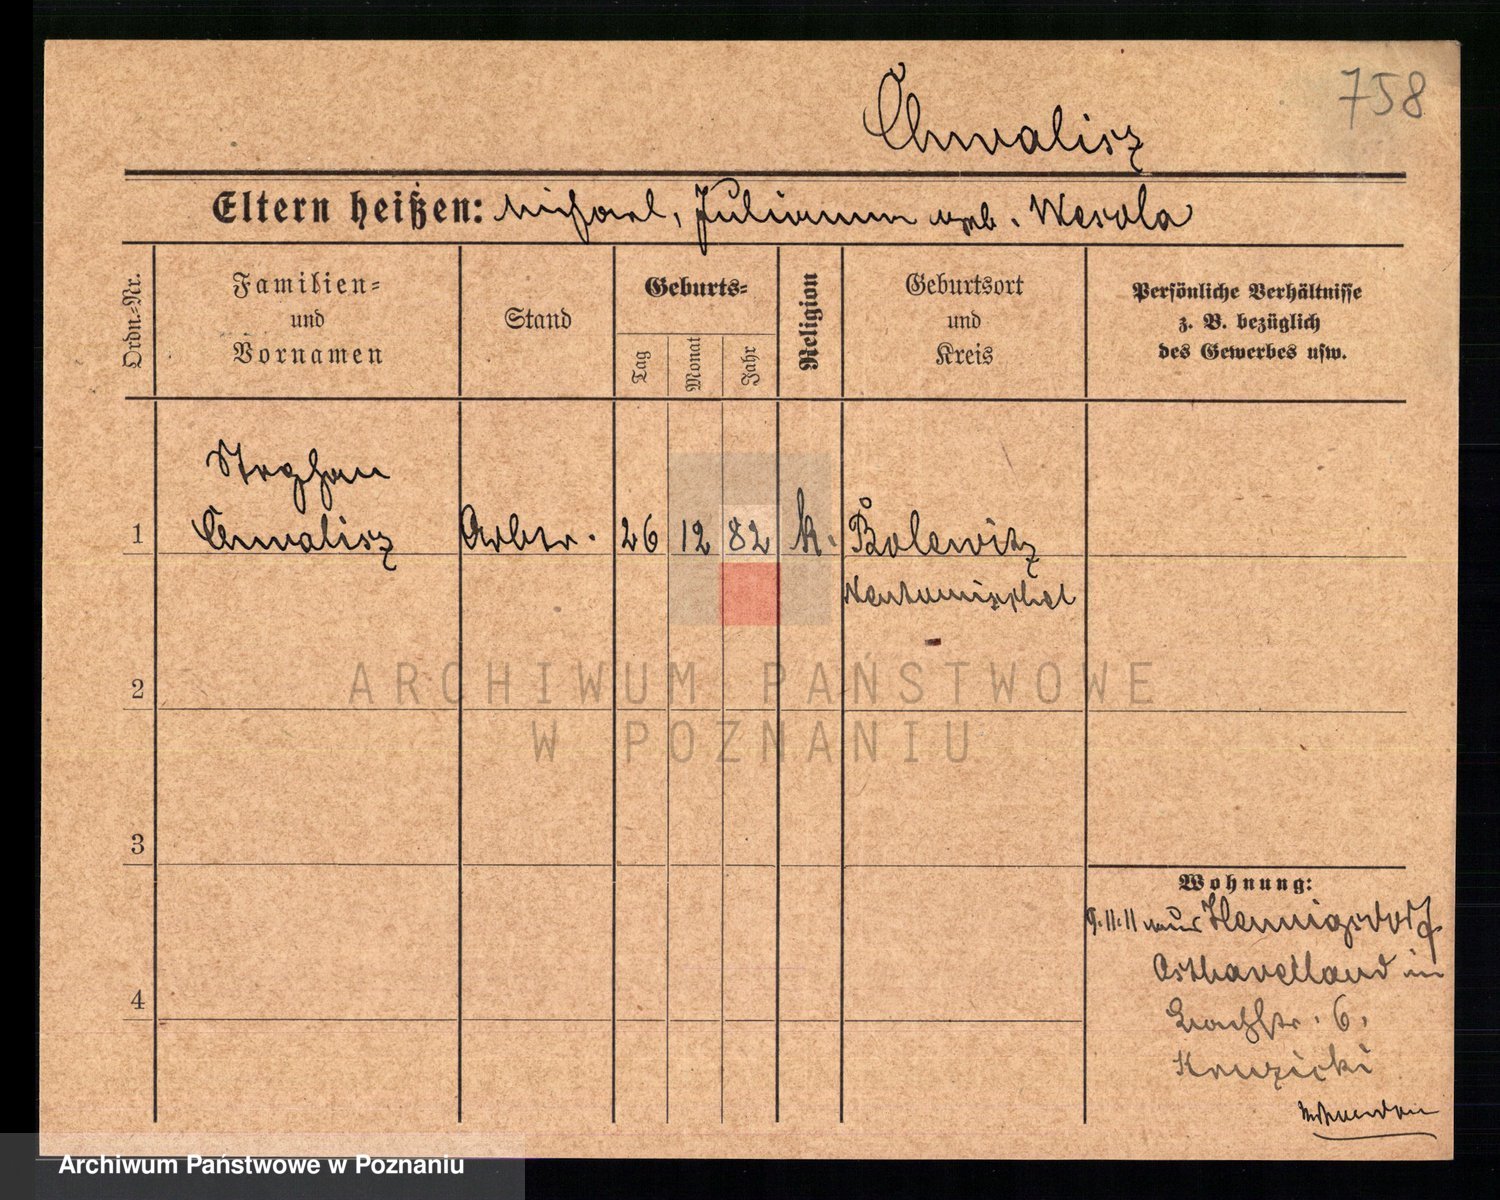 758
Chwalisz
Eltern heißen: Michael, Julianna geb. Wesola
Ordn.-Nr.
Familien-
und
Vornamen
Stand
Geburts-
Tag
Monat
Jahr
Religion
Geburtsort
und
Kreis
Persönliche Verhältnisse
z. B. bezüglich
des Gewerbes usw.
Stephan
1 Chwalisz Arbtr. 26 12 82 k. Bolewitz
Neutomischel
2
ARCHIWUM PAŃSTWOWE
W POZNANIU
3
Wohnung:
9.11.11 aus Hennigsdorf
Osthavelland in
4
6.
Kruzicki
Archiwum Państwowe w Poznaniu